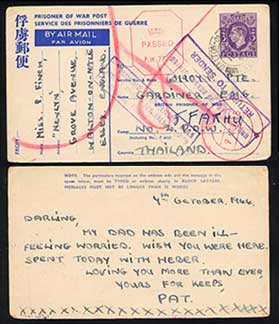 PRISONER OF WAR POST
SERVICE DES PRISONNIERS DE GUERRE
俘虜郵便
BY AIR MAIL
PAR AVION
PASSED
P.W. 77
POSTAGE
MISS. P. FINCH,
"NEWLYN"
GROVE AVENUE,
WALTON-ON-NAZE
ESSEX, ENGLAND.
PTE.
GARDINER
BRITISH PRISONER OF WAR
Camp:
No
P.O.W.
Country:
THAILAND.
RETURN
SENDER
NOTE.
The particulars required on the address side and the message in the
space below, must be TYPED or written clearly in BLOCK LETTERS.
MESSAGES MUST NOT BE LONGER THAN 25 WORDS.
4TH OCTOBER, 1944.
DARLING,
MY DAD HAS BEEN ILL-
FEELING WORRIED. WISH YOU WERE HERE.
SPENT TODAY WITH HEBER.
LOVING YOU MORE THAN EVER,
YOURS FOR KEEPS,
PAT.
XXXXXXXXXXXXXXXXXXXX